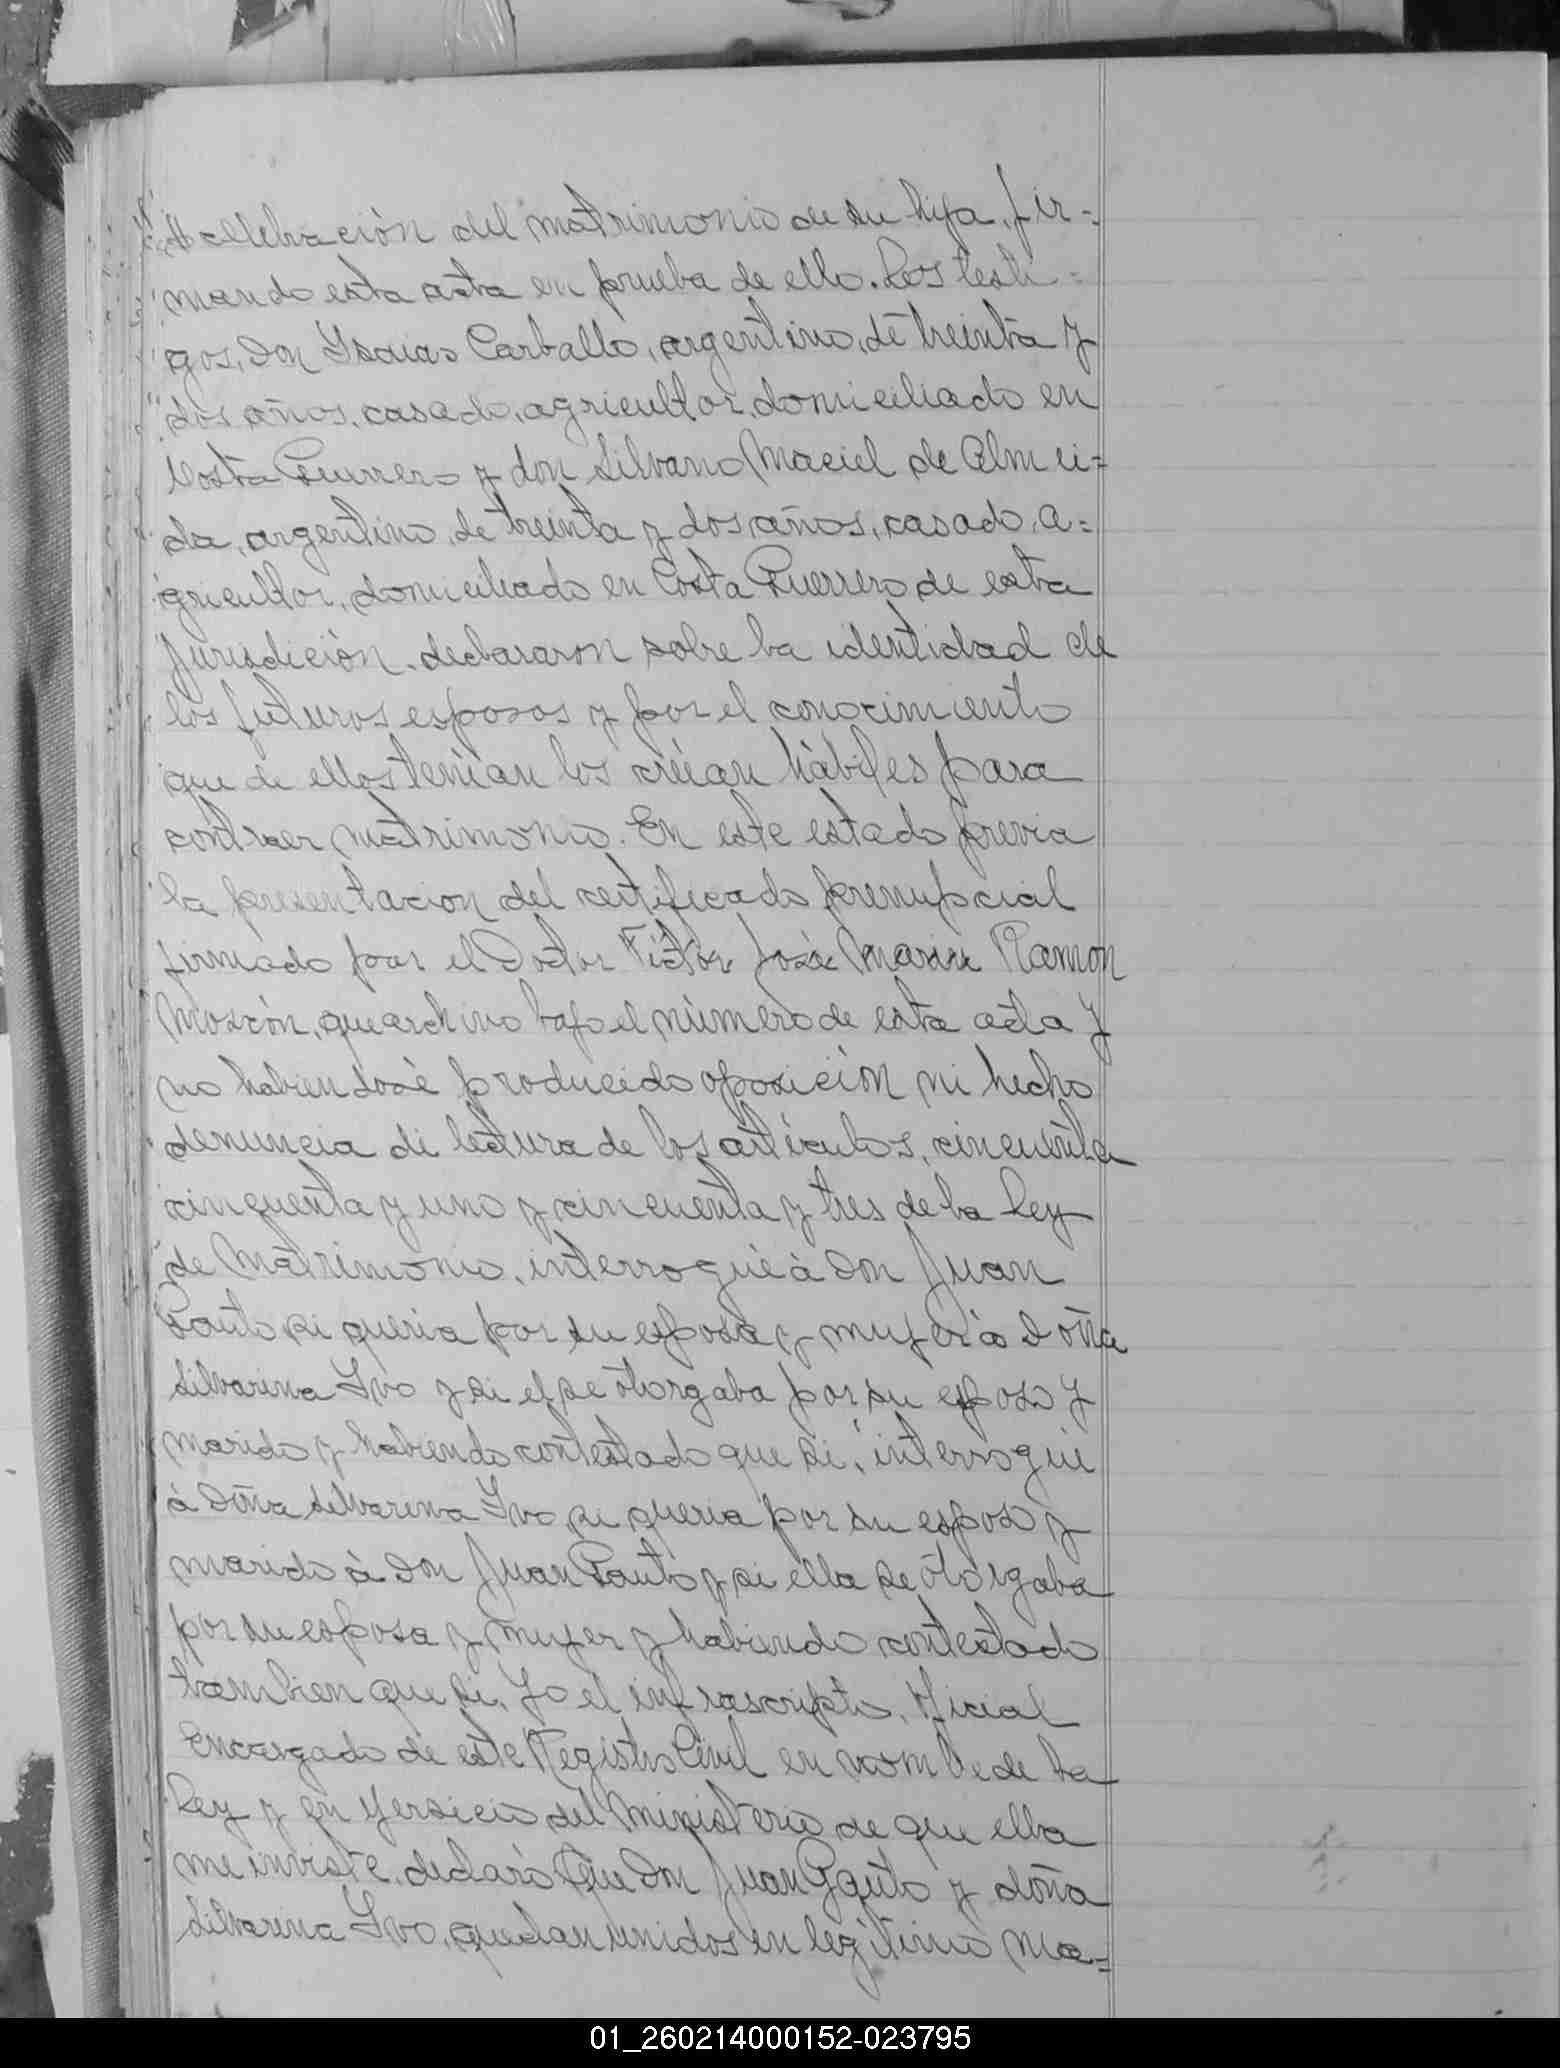 celebración del matrimonio de su hija, fir=
mando esta acta en prueba de ello. Los testi=
gos, Don Ysaias Carballo, argentino, de treinta y
dos años, casado, agricultor, domiciliado en
Costa Guerrero y don Silvano Maciel de Almei=
da, argentino, de treinta y dos años, casado, a=
gricultor, domiciliado en Costa Guerrero de esta
Jurisdición, declararon sobre la identidad de
los futuros esposos y por el conocimiento
que de ellos tenian los creian hábiles para
contraer matrimonio. En este estado previa
la presentacion del certificado prenupcial
firmado por el Doctor José Ramon
que archivo bajo el número de esta acta y
no habiendosé producido oposición ni hecho
denuncia di lectura de los artículos, cincuenta
cinquenta y uno y cincuenta y tres de la Ley
de Matrimonio, interrogué à Don Juan
Gauto si queria por su esposa y mujer à Doña
Silvarina Yvo y si el se otorgaba por su esposo y
marido y habiendo contestado que si, interrogué
à Doña Silvarina Yvo, si queria por su esposo y
marido à Don Juan Gauto y si ella se otorgaba
por su esposa y mujer y habiendo contestado
tambien que si, Yo el infrascripto, Oficial
Encargado de este Registro Civil en nombre de la
Ley y en yersicio del Ministerio de que ella
me inviste, declaro Que Don Juan Gauto y doña
Silvarina Yvo, quedan unidos en legitimo Ma=
01_260214000152-023795